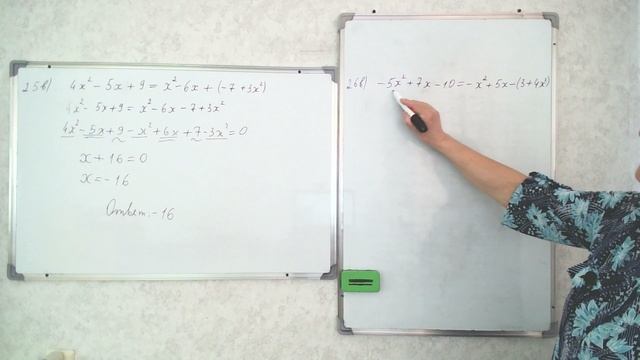 25в) 4x² - 5x + 9 = x² - 6x + (-7 + 3x²)
4x² - 5x + 9 = x² - 6x - 7 + 3x²
4x² - 5x + 9 - x² + 6x + 7 - 3x² = 0
x + 16 = 0
x = -16
Ответ: -16
26в) -5x² + 7x - 10 = -x² + 5x - (3 + 4x²)